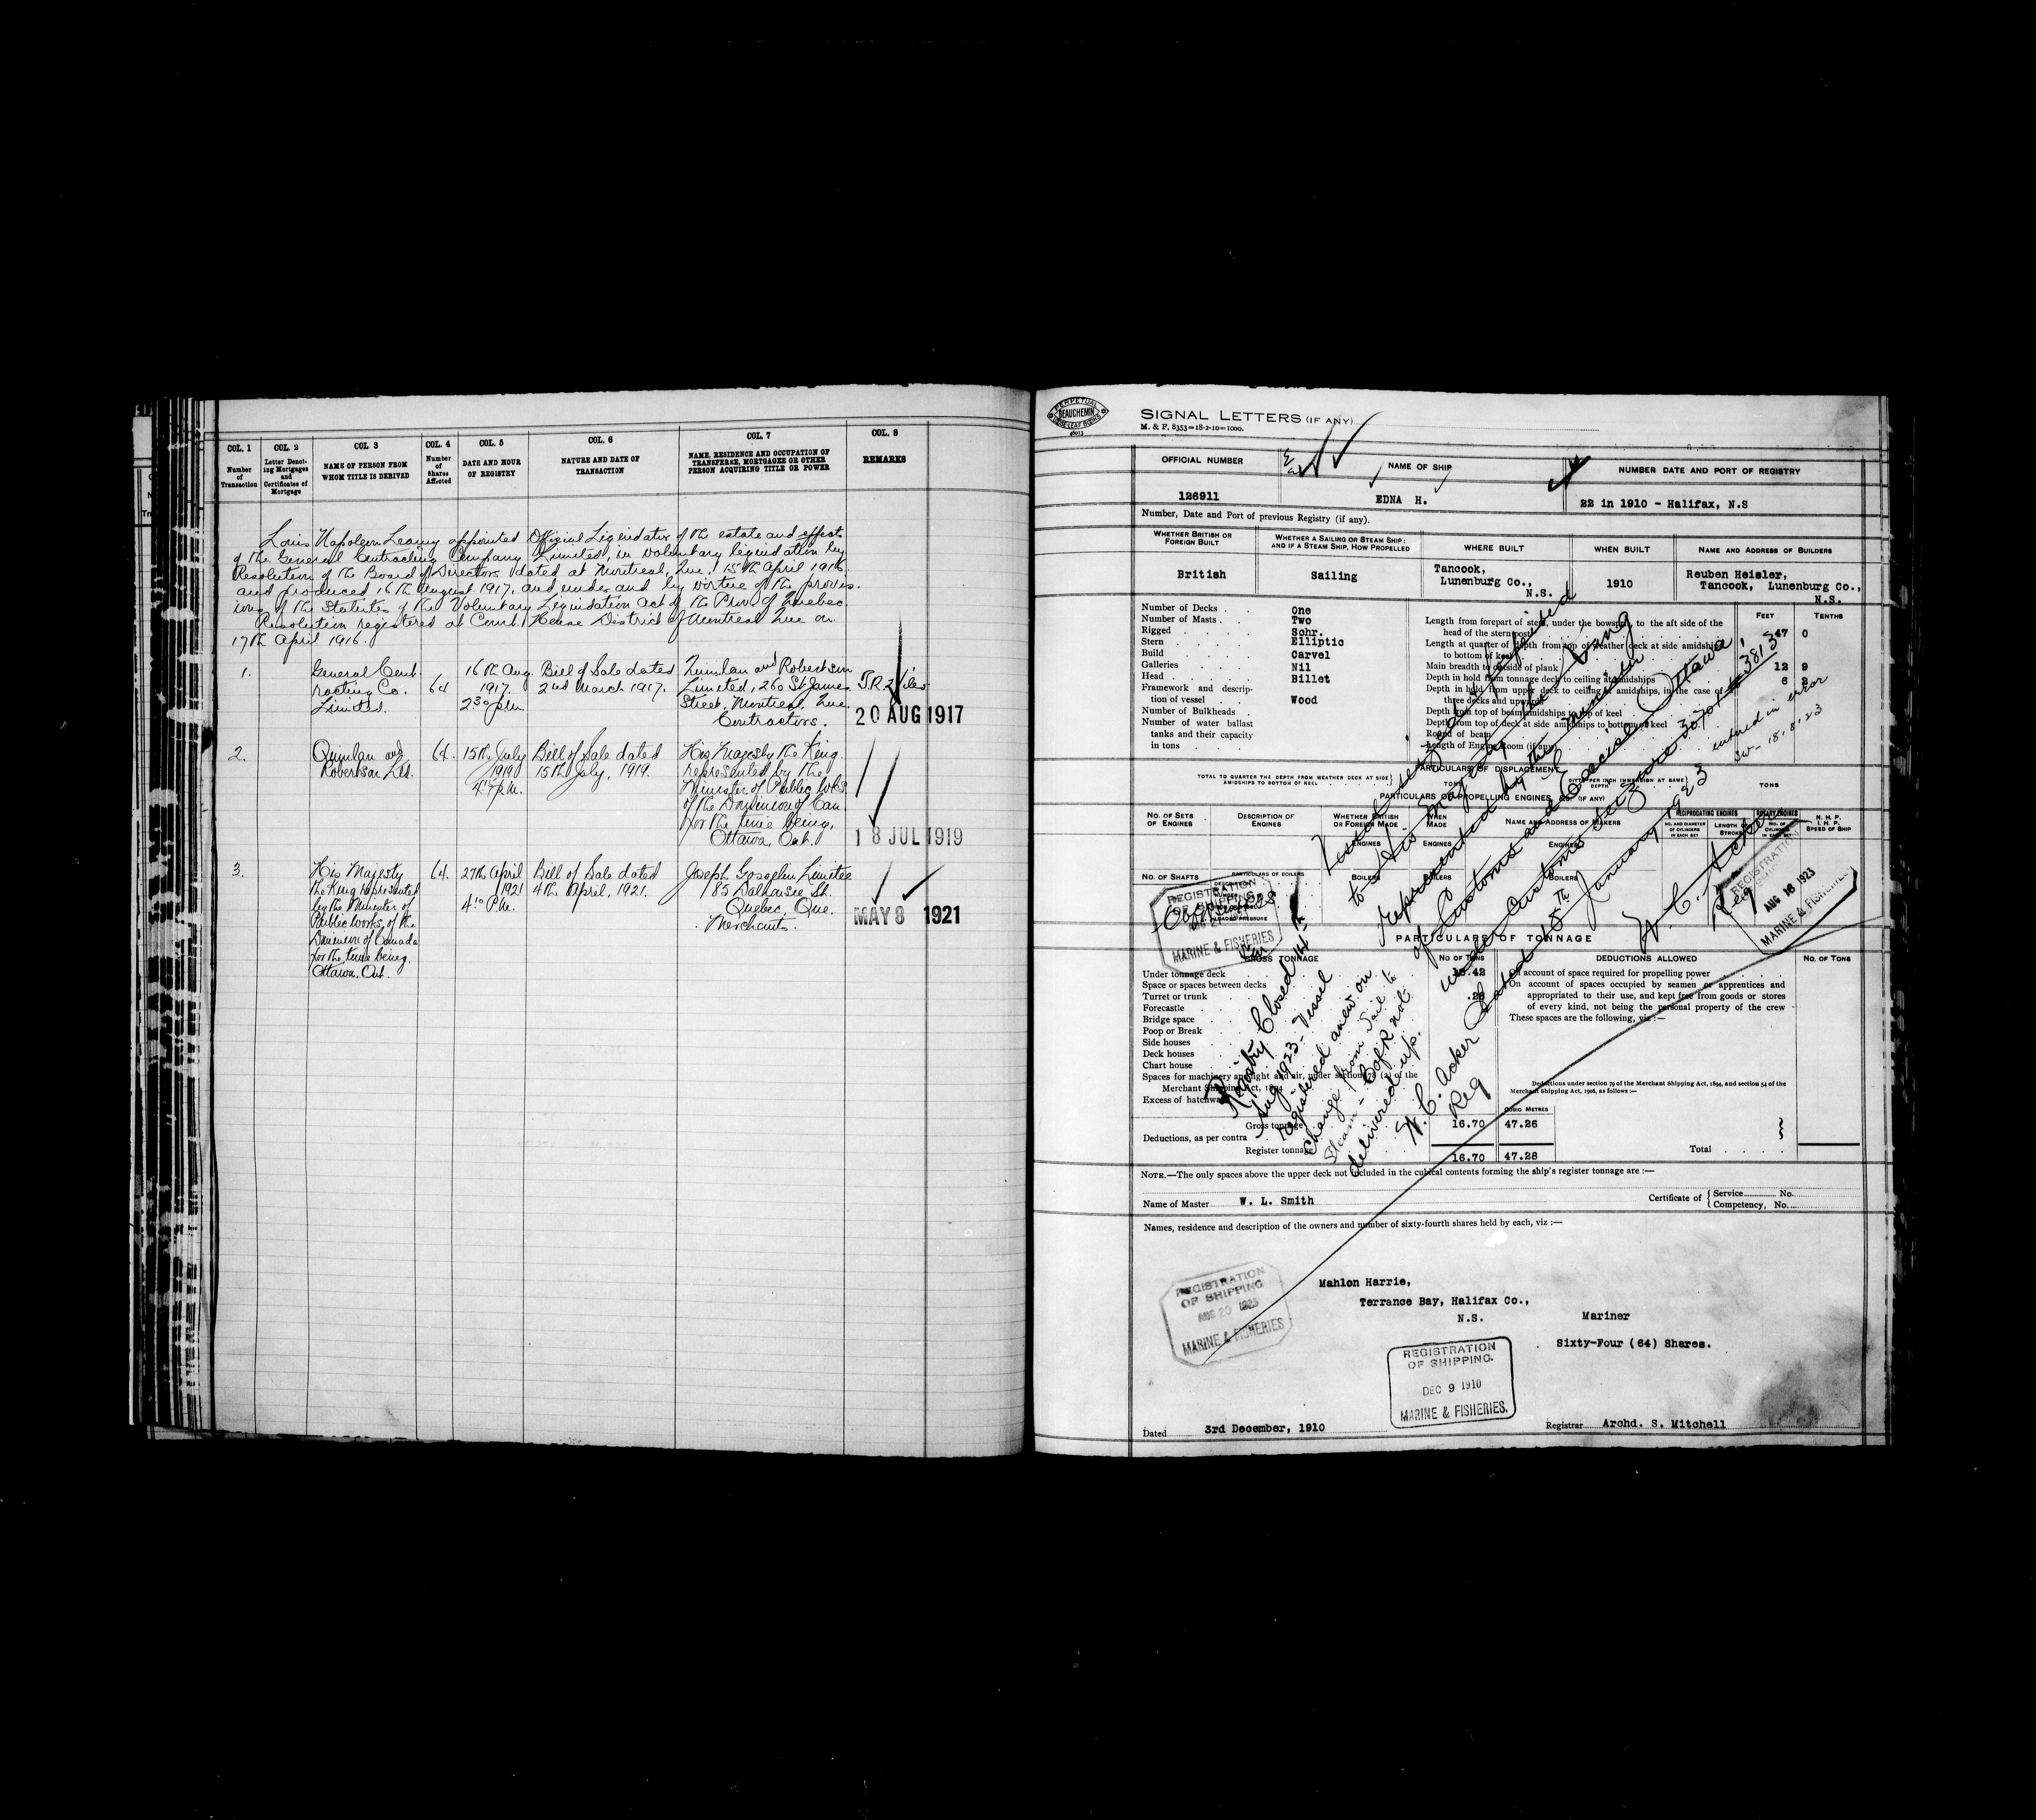 COL. 1
Number of Transaction
COL. 2
Letter Denoting Mortgages and Certificates of Mortgage
COL. 3
NAME OF PERSON FROM WHOM TITLE IS DERIVED
COL. 4
Number of Shares Affected
COL. 5
DATE AND HOUR OF REGISTRY
COL. 6
NATURE AND DATE OF TRANSACTION
COL. 7
NAME, RESIDENCE AND OCCUPATION OF TRANSFEREE, MORTGAGEE OR OTHER PERSON ACQUIRING TITLE OR POWER
COL. 8
REMARKS
Louis Napoleon Leamy appointed Official Liquidator of the estate and effects
of the General Contracting Company Limited, in voluntary liquidation by
Resolution of the Board of Directors dated at Montreal, Que. 15th April 1916
and produced 16th August 1917, and under and by virtue of the provis-
ions of the Statutes of the Voluntary Liquidation Act of the Prov. of Quebec.
Resolution registered at Court House District of Montreal Que on
17th April 1916.
1.
General Cont-
racting Co.
Limited.
64
16th Aug.
1917.
2.30 p.m.
Bill of Sale dated
2nd March 1917.
Quinlan and Robertson
Limited, 260 St James
Street, Montreal, Que.
Contractors.
20 AUG 1917
2.
Quinlan and
Robertson Ltd.
64.
15th July
1919
Bill of Sale dated
15th July, 1919.
His Majesty the King
represented by the
Minister of Public Wks
of the Dominion of Can.
for the time being,
Ottawa, Ont.
18 JUL 1919
3.
His Majesty
the King represented
by the Minister of
Public Works, of the
Dominion of Canada
for the time being.
Ottawa, Ont.
64.
27th April
1921
4.10 P.M.
Bill of Sale dated
4th April, 1921.
Joseph Gosselin Limitee
185 Dalhousie St.
Quebec, Que.
Merchants.
MAY 8 1921
PERPETUAL
BEAUCHEMIN
LOOSE-LEAF BINDERS
SIGNAL LETTERS (IF ANY)
M. & F. 8353=18-2-10=1000.
OFFICIAL NUMBER
NAME OF SHIP
NUMBER DATE AND PORT OF REGISTRY
126911
EDNA H.
22 in 1910 - Halifax, N.S
Number, Date and Port of previous Registry (if any).
WHETHER BRITISH OR FOREIGN BUILT
WHETHER A SAILING OR STEAM SHIP: AND IF A STEAM SHIP, HOW PROPELLED
WHERE BUILT
WHEN BUILT
NAME AND ADDRESS OF BUILDERS
British
Sailing
Tancook,
Lunenburg Co.,
N.S.
1910
Reuben Heisler,
Tancook, Lunenburg Co.,
N.S.
FEET
TENTHS
Number of Decks One
Number of Masts Two
Rigged Schr.
Stern Elliptic
Build Carvel
Galleries Nil
Head Billet
Framework and description of vessel Wood
Number of Bulkheads
Number of water ballast
tanks and their capacity
in tons
Length from forepart of stem, under the bowsprit to the aft side of the
head of the sternpost 47 0
Length at quarter of depth from top of weather deck at side amidships
to bottom of keel
Main breadth to outside of plank 12 9
Depth in hold from tonnage deck to ceiling at amidships 6
Depth in hold from upper deck to ceiling at amidships, in the case of
three decks and upwards
Depth from top of beam amidships to top of keel
Depth from top of deck at side amidships to bottom of keel
Round of beam
Length of Engine Room (if any)
PARTICULARS OF DISPLACEMENT
TOTAL TO QUARTER THE DEPTH FROM WEATHER DECK AT SIDE AMIDSHIPS TO BOTTOM OF KEEL
TONS
DITTO PER INCH IMMERSION AT SAME DEPTH
TONS
PARTICULARS OF PROPELLING ENGINES, &c. (IF ANY)
NO. OF SETS OF ENGINES
DESCRIPTION OF ENGINES
WHETHER BRITISH OR FOREIGN MADE
WHEN MADE
NAME AND ADDRESS OF MAKERS
RECIPROCATING ENGINES
NO. AND DIAMETER OF CYLINDERS IN EACH SET
LENGTH OF STROKE
ROTARY ENGINES
NO. OF CYLINDERS IN EACH SET
N. H. P.
I. H. P.
SPEED OF SHIP
ENGINES
ENGINES
ENGINES
NO. OF SHAFTS
PARTICULARS OF BOILERS
BOILERS
BOILERS
BOILERS
LOADED PRESSURE
Vessel seized and forfeited
to His Majesty the King
represented by the Minister
of Customs and Excise, Ottawa
under Customs seizure
Dated 18th January 1923
W. C. Acker
Reg
entered in error
18.8.23
REGISTRATION
OF SHIPPING
AUG 16 1923
MARINE & FISHERIES.
REGISTRATION
OF SHIPPING
MARINE & FISHERIES
PARTICULARS OF TONNAGE
GROSS TONNAGE
NO OF TONS
DEDUCTIONS ALLOWED
NO. OF TONS
Under tonnage deck
Space or spaces between decks
Turret or trunk
Forecastle
Bridge space
Poop or Break
Side houses
Deck houses
Chart house
Spaces for machinery and light and air, under section 78 (2) of the
Merchant Shipping Act, 1894
Excess of hatchways
On account of space required for propelling power
On account of spaces occupied by seamen or apprentices and
appropriated to their use, and kept free from goods or stores
of every kind, not being the personal property of the crew
These spaces are the following, viz:—
Deductions under section 79 of the Merchant Shipping Act, 1894, and section 54 of the
Merchant Shipping Act, 1906, as follows:—
CUBIC METRES
Gross tonnage 16.70 47.26
Deductions, as per contra
Register tonnage 16.70 47.28
Total
Registry Closed 14th
Aug 1923 - Vessel
registered anew on
change from Sail to
Steam - C of R not
delivered up.
W. C. Acker
Reg
NOTE.—The only spaces above the upper deck not included in the cubical contents forming the ship's register tonnage are:—
Name of Master W. L. Smith
Certificate of
Service No.
Competency, No.
Names, residence and description of the owners and number of sixty-fourth shares held by each, viz:—
Mahlon Harrie,
Terrance Bay, Halifax Co.,
N.S.
Mariner
Sixty-Four (64) Shares.
REGISTRATION
OF SHIPPING
AUG 20 1923
MARINE & FISHERIES
REGISTRATION
OF SHIPPING.
DEC 9 1910
MARINE & FISHERIES.
Dated 3rd December, 1910
Registrar Archd. S. Mitchell